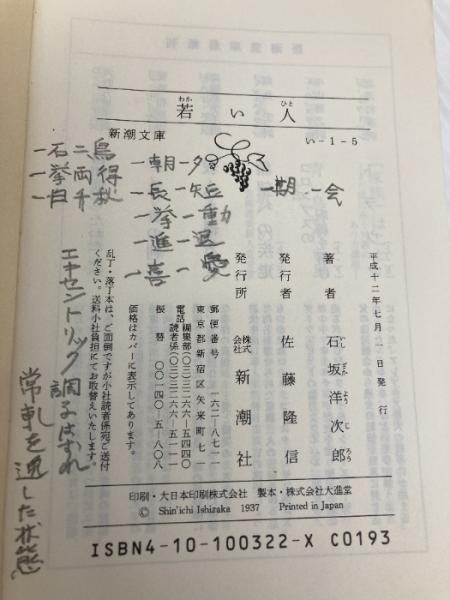 若い人
わか
ひと
新潮文庫
い-1-5
一石二鳥
一挙両得
一日千秋
一朝一夕
一長一短
一挙一動
一進一退
一喜一憂
一期一会
平成十二年七月一日発行
著者 石坂洋次郎
いしざかようじろう
発行者 佐藤隆信
発行所 株式会社 新潮社
郵便番号 一六二―八七一一
東京都新宿区矢来町七一
電話 編集部(〇三)三二六六―五四四〇
読者係(〇三)三二六六―五一一一
振替 〇〇一四〇―五―八〇八
価格はカバーに表示してあります。
乱丁・落丁本は、ご面倒ですが小社読者係宛ご送付
ください。送料小社負担にてお取替えいたします。
エキセントリック 調子はずれ
常軌を逸した状態
印刷・大日本印刷株式会社 製本・株式会社大進堂
© Shin'ichi Ishizaka 1937 Printed in Japan
ISBN4-10-100322-X C0193